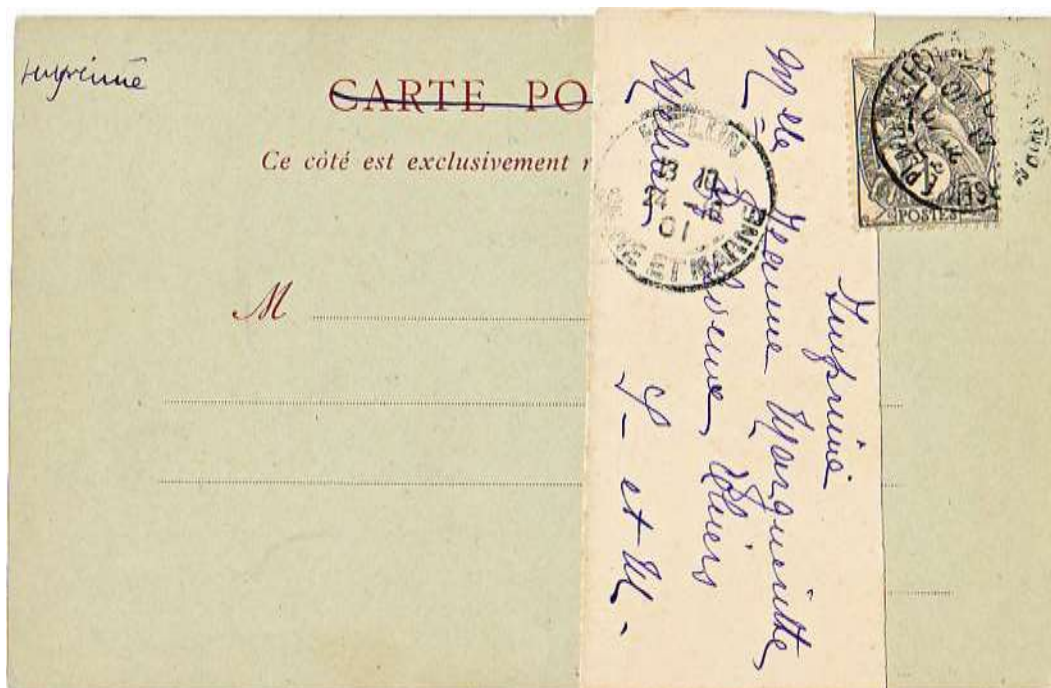 Imprimé
CARTE PO
Ce côté est exclusivement r
M
Imprimé
Melle Jeanne Margueritte,
Avenue Thiers
Melun
S- et M.
MELUN
13 10
24
01
SEINE ET MARNE
POSTES